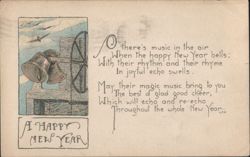 There's music in the air
When the happy New Year bells;
With their rhythm and their rhyme
In joyful echo swells.
May their magic music bring to you
The best o' glad good cheer,
Which will echo and re-echo
Throughout the whole New Year.
A HAPPY
NEW YEAR